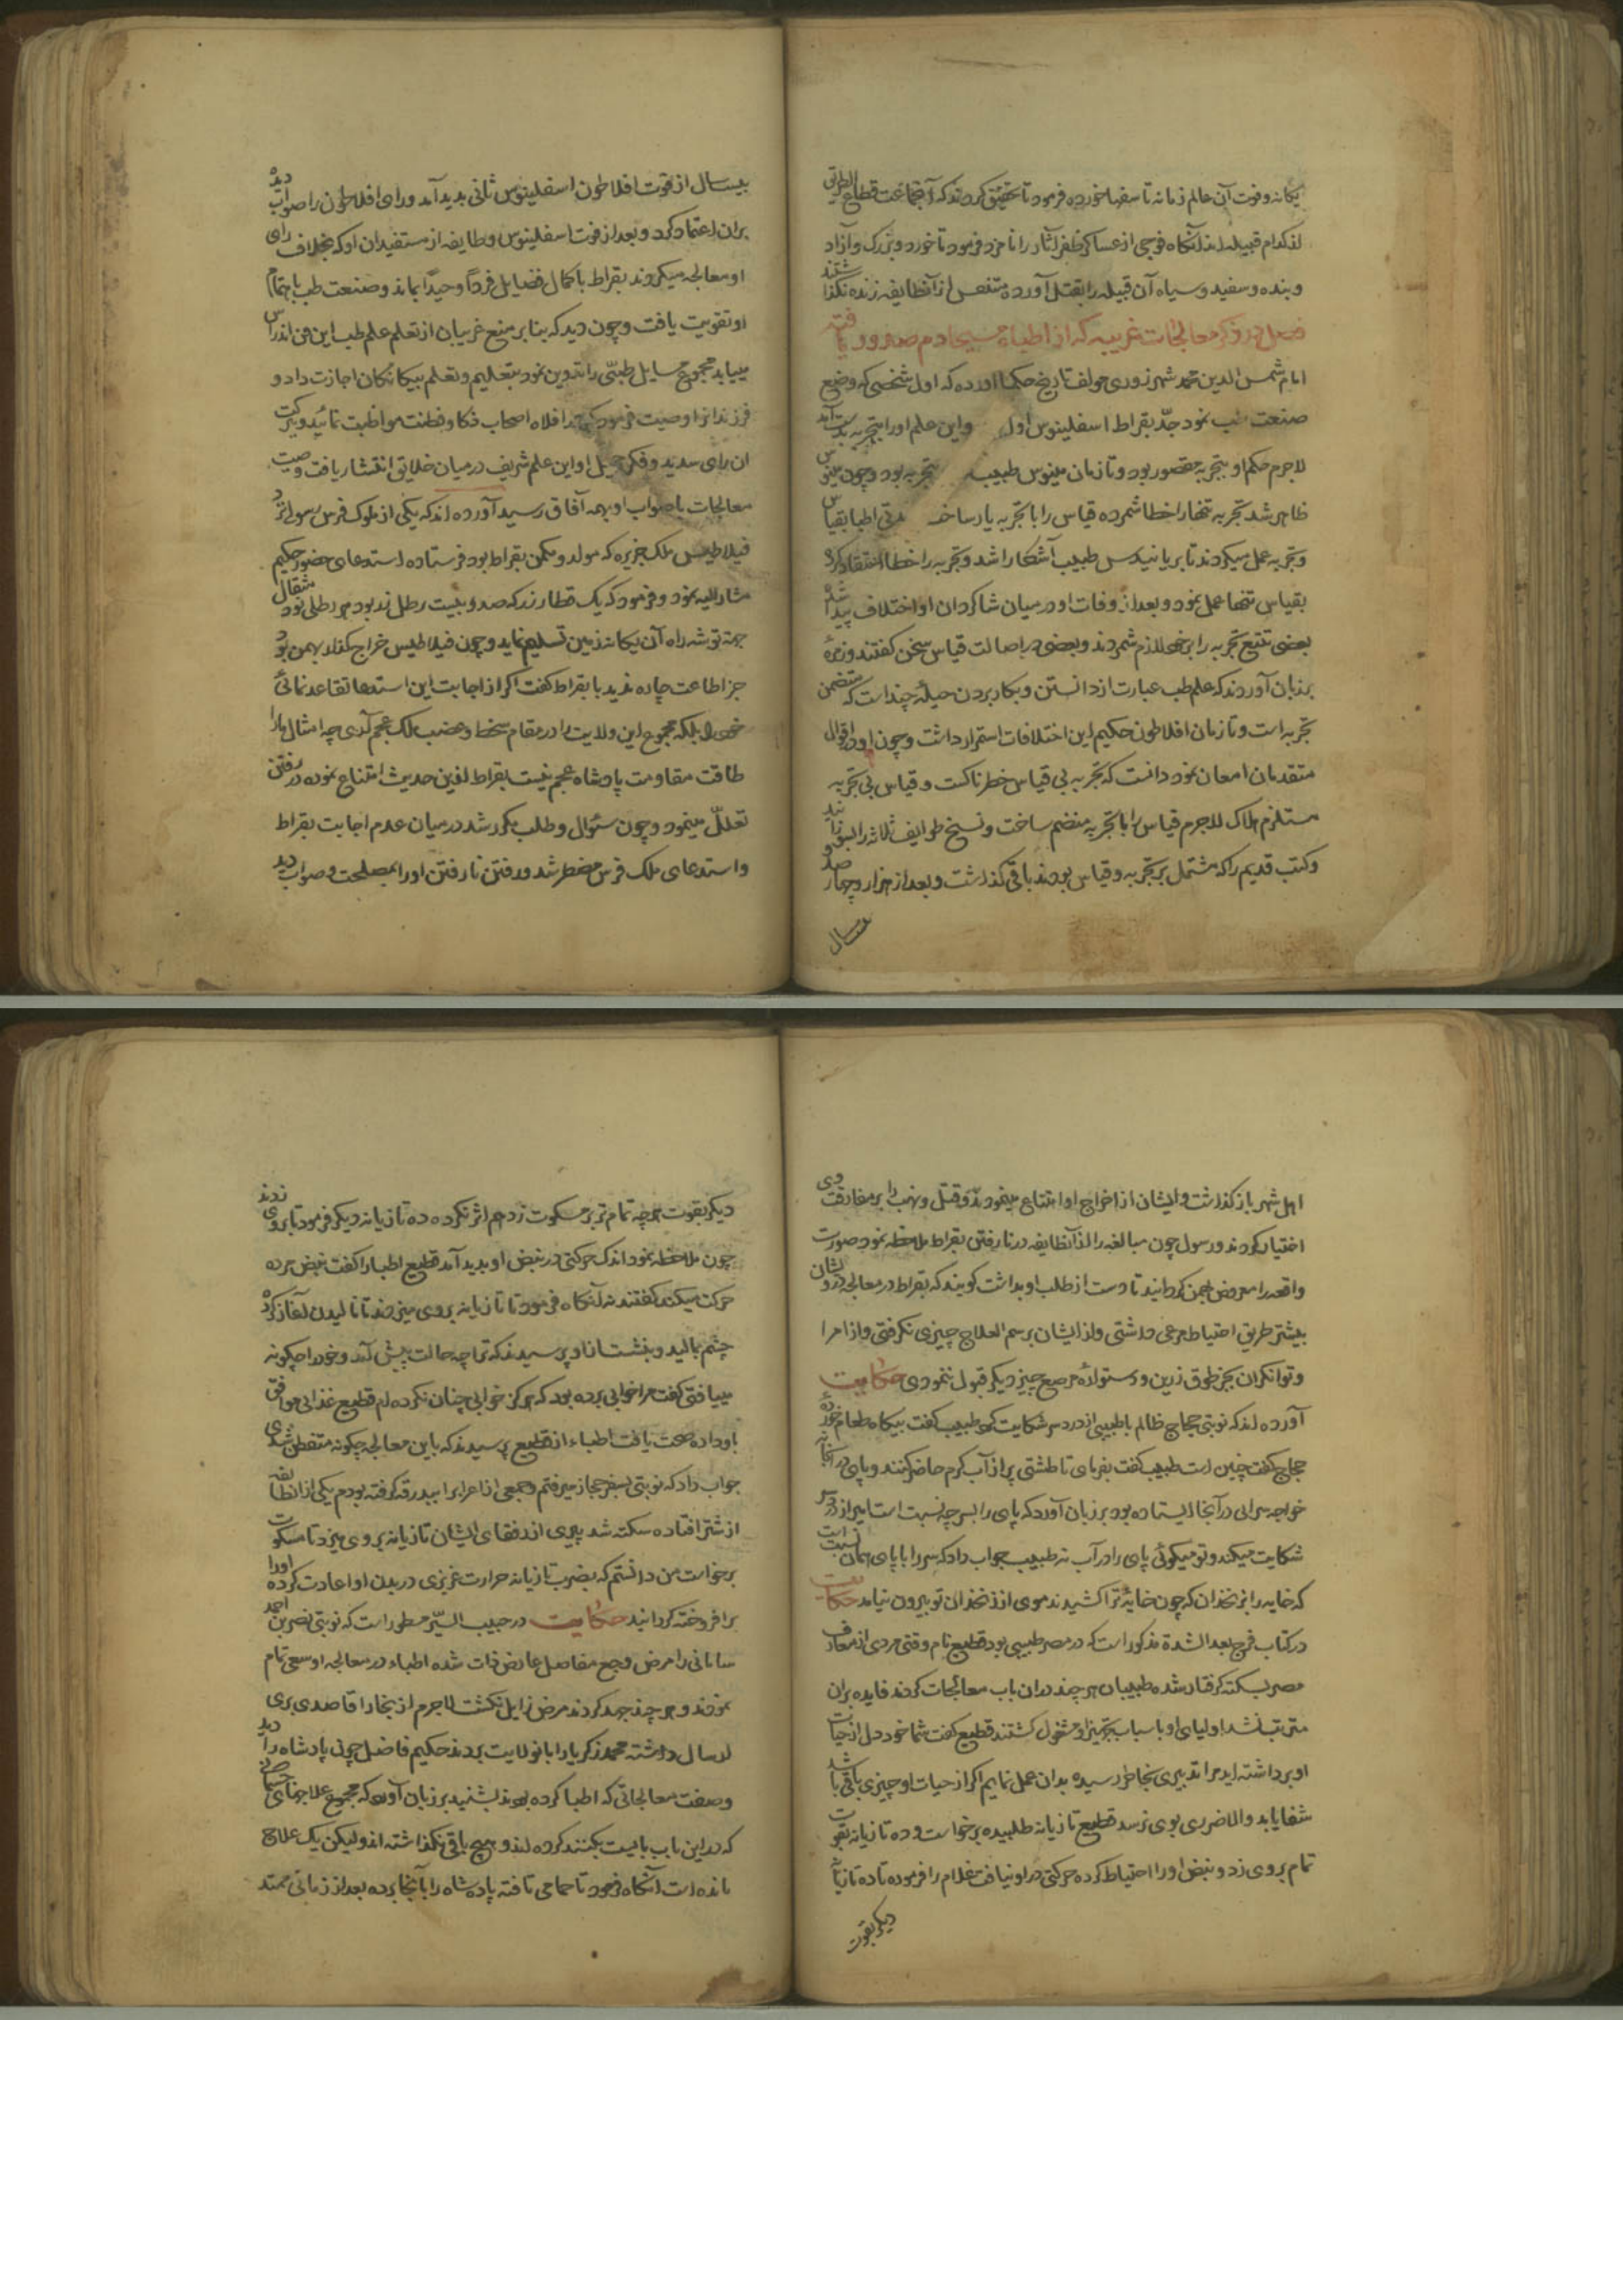 یکانه وفوت آن عالم زمانه تاسفها خورده فرمود تا تحقیق کردند که آنجماعت قطاع الطریق
از کدام قبیله اند آنکاه فوجی از عساکر ظفر آثار را نامزد فرمود تا خورد و بزرک و آزاد
و بنده و سفید و سیاه آن قبیله را بقتل آورده متنفس از آنطایفه زنده نکذاشتند
فصل در ذکر معالجات غریبه که از اطباء مسیحا دم صدور یافته
امام شمس الدین محمد شهرزوری مولف تاریخ حکما آورده که اول شخصی که وضع
صنعت طب نمود جد بقراط اسفلینوس اول واین علم اورا بتجربه بدست آمد
لاجرم حکم او بتجربه مقصور بود و تا زمان مینوس طبیب تجربه بود و چون مینوس
ظاهر شد تجربه تنها را خطا شمرده قیاس را با تجربه یار ساخت مدتی اطبا بقیاس
وتجربه عمل میکردند تا برمانیدس طبیب آشکارا شد و تجربه را خطا اعتقاد کرد
بقیاس تنها عمل نمود و بعد از وفات او در میان شاکردان او اختلاف پیدا شد
بعضی تتبع تجربه را برخود لازم شمردند و بعضی در اصالت قیاس سخن کفتند و زمرهٔ
بر زبان آوردند که علم طب عبارت از دانستن و بکار بردن حیلهٔ چند است که متضمن
تجربه است و تا زمان افلاطون حکیم این اختلافات استمرار داشت و چون او در اقوال
متقدمان امعان نمود دانست که تجربه بی قیاس خطرناکست و قیاس بی تجربه
مستلزم هلاک لاجرم قیاس را با تجربه منضم ساخت و نسخ طوایف ثلاثه را بسوزانید
وکتب قدیم را که مشتمل بر تجربه و قیاس بودند باقی کذاشت و بعد از هزار و چهار صد و
بیسال
بیسال از فوت افلاطون اسفلینوس ثانی بدید آمد و رای افلاطون را صواب دیده
بران اعتماد کرد و بعد از فوت اسفلینوس و طایفه از مستفیدان او که بخلاف رای
او معالجه میکردند بقراط با کمال فضایل فردًا وحیدًا بماند و صنعت طب باهتمام
او تقویت یافت و چون دید که بنابر منع غریبان از تعلم علم طب این فن اندراس
مییابد مجموع مسایل طبی را تدوین نمود بتعلیم و تعلم بیکانکان اجازت داد و
فرزندانرا وصیت فرمود که اصحاب ذکا و فطنت مواظبت نمائید و ببرکت
ان رای سدید و فکر جمیل او این علم شریف در میان خلایق انتشار یافت و صیت
معالجات باصواب او بهمه آفاق رسید آورده اند که یکی از ملوک فرس رسولی نزد
فیلاطیس ملک جزیره که مولد و مسکن بقراط بود فرستاده استدعای حضور حکیم
مشارالیه نمود و فرمود که یک قنطار زر که صد و بیست رطل زر بود هر رطلی نود مثقال
جهة توشه راه آن یکانه زمین تسلیم نماید و چون فیلاطیس خراج کذار بهمن بود
جز اطاعت چاره ندید با بقراط کفت اکر از اجابت این استدعا تقاعد نمائی
خود را بلکه مجموع این ولایت را در مقام سخط و غضب ملک عجم آری چه امثال ما را
طاقت مقاومت پادشاه عجم نیست بقراط ازین حدیث امتناع نموده در رفتن
تعلل مینمود و چون سئوال و طلب مکرر شد در میان عدم اجابت بقراط
واستدعای ملک فرس مضطر شد و رفتن نا رفتن اورا بمصلحت و صواب دید
اهل شهر باز کذاشت و ایشان از اخراج او امتناع مینمودند و قتل و نهب را بر مفارقت وی
اختیار کردند و رسول چون مبالغه را از آنطایفه در نا رفتن بقراط ملاحظه نمود صورت
واقعه را معروض بهمن کردانید تا دست از طلب او بداشت کویند که بقراط در معالجه درویشان
بیشتر طریق احتیاط مرعی داشتی و از ایشان برسم العلاج چیزی نکرفتی و از امرا
و توانکران بجز طوق زرین و دستوانهٔ مرصع چیز دیکر قبول ننمودی حکایت
آورده اند که نوبتی حجاج ظالم با طبیبی از درد سر شکایت کرد طبیب کفت بیکاه طعام خورده
حجاج کفت چنین است طبیب کفت بفرمای تا طشتی پر از آب کرم حاضر کنند و پای در آنجا نه
خواجه سرایی در آنجا ایستاده بود بر زبان آورد که پای را بسر چه نسبت است امیر از درد سر
شکایت میکند و تو میکوئی پای را در آب نه طبیب جواب داد که سر را با پای همان نسبت است
که خایه را بزنخدان که چون خایهٔ ترا کشیدند موی از زنخدان تو بیرون نیامد حکایت
در کتاب فرج بعد الشدة مذکور است که در مصر طبیبی بود قطیع نام وقتی مردی از معارف
مصر بسکته کرفتار شده طبیبان هر چند دران باب معالجات کردند فایده بران
مترتب نشد اولیای او باسباب تجهیز او مشغول کشتند قطیع کفت شما خود دل از حیات
او برداشته اید مرا تدبیری بخاطر رسیده بدان عمل نمایم اکر از حیات او چیزی باقی باشد
شفا یابد والا ضرری بوی نرسد قطیع تازیانه طلبیده برخواست و ده تازیانه بقوت
تمام بر وی زد و نبض او را احتیاط کرده حرکتی در او نیافت غلام را فرمود تا ده تازیانه
دیکر بقوت
دیکر بقوت هر چه تمام تر بر مسکوت زد هم اثر نکرد ده تازیانه دیکر فرمود تا بر وی زدند
چون ملاحظه نمود اندک حرکتی در نبض او بدید آمد قطیع اطبا را کفت نبض مرده
حرکت میکند کفتند نه آنکاه فرمود تا تازیانه بر وی میزدند تا نالیدن آغاز کرده
چشم بمالید و بنشست ازو پرسیدند که ترا چه حالت پیش آمد و خود را چکونه
مییافتی کفت مرا خوابی برده بود که هرکز خوابی چنان نکرده ام قطیع غذایی موافق
باو داده صحت یافت اطباء از قطیع پرسیدند که باین معالجه چکونه متفطن شدی
جواب داد که نوبتی بسفر حجاز میرفتم و جمعی از اعراب را ببدرقه کرفته بودم یکی از آنطایفه
از شتر افتاده سکته شد پیری از رفقای ایشان تازیانه بر وی میزد تا مسکوت
برخواست من دانستم که بضرب تازیانه حرارت غریزی در بدن او اعادت کرده اورا
برافروخته کردانید حکایت در حبیب السیر مسطور است که نوبتی نصر بن احمد
سامانی را مرض وجع مفاصل عارض ذات شده اطباء در معالجه او سعی تمام
نمودند و هر چند جهد کردند مرض زایل نکشت لاجرم از بخارا قاصدی بری
ارسال داشته محمد زکریا را بانولایت بردند حکیم فاضل چون پادشاه را دید
وصفت معالجاتی که اطبا کرده بودند بشنید بر زبان آورد که مجموع علاجهای جسمانی
که در این باب بایست بکنند کرده اند و هیچ باقی نکذاشته اند ولیکن یک علاج
مانده است آنکاه فرمود تا حمامی تافته پادشاه را بآنجا برده بعد از زمانی ممتد